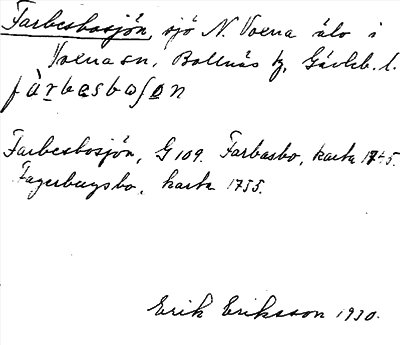 Farbesbosjön, sjö N. Voxna älv i
Voxna sn, Bollnäs tg, Gävleb. l.
fàrbesbosjon
Farbesbosjön, G 109. Farbasbo, karta 1745.
Fagerbergsbo, karta 1755.
Erik Eriksson 1930.